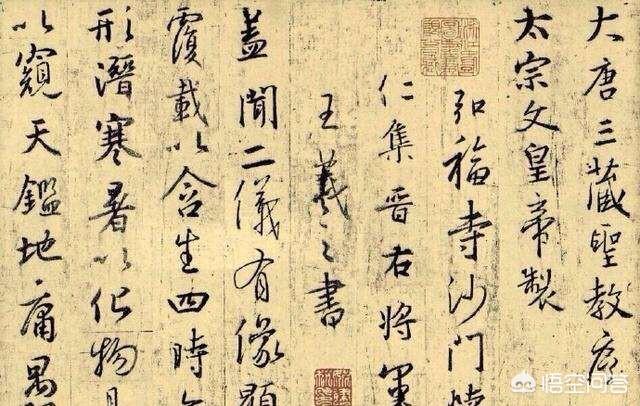 大唐三藏聖教序
太宗文皇帝製
弘福寺沙門懷
仁集晉右將軍
王羲之書
蓋聞二儀有像顯
覆載以含生四時
形潛寒暑以化物是
以窺天鑑地庸愚
悟空问答